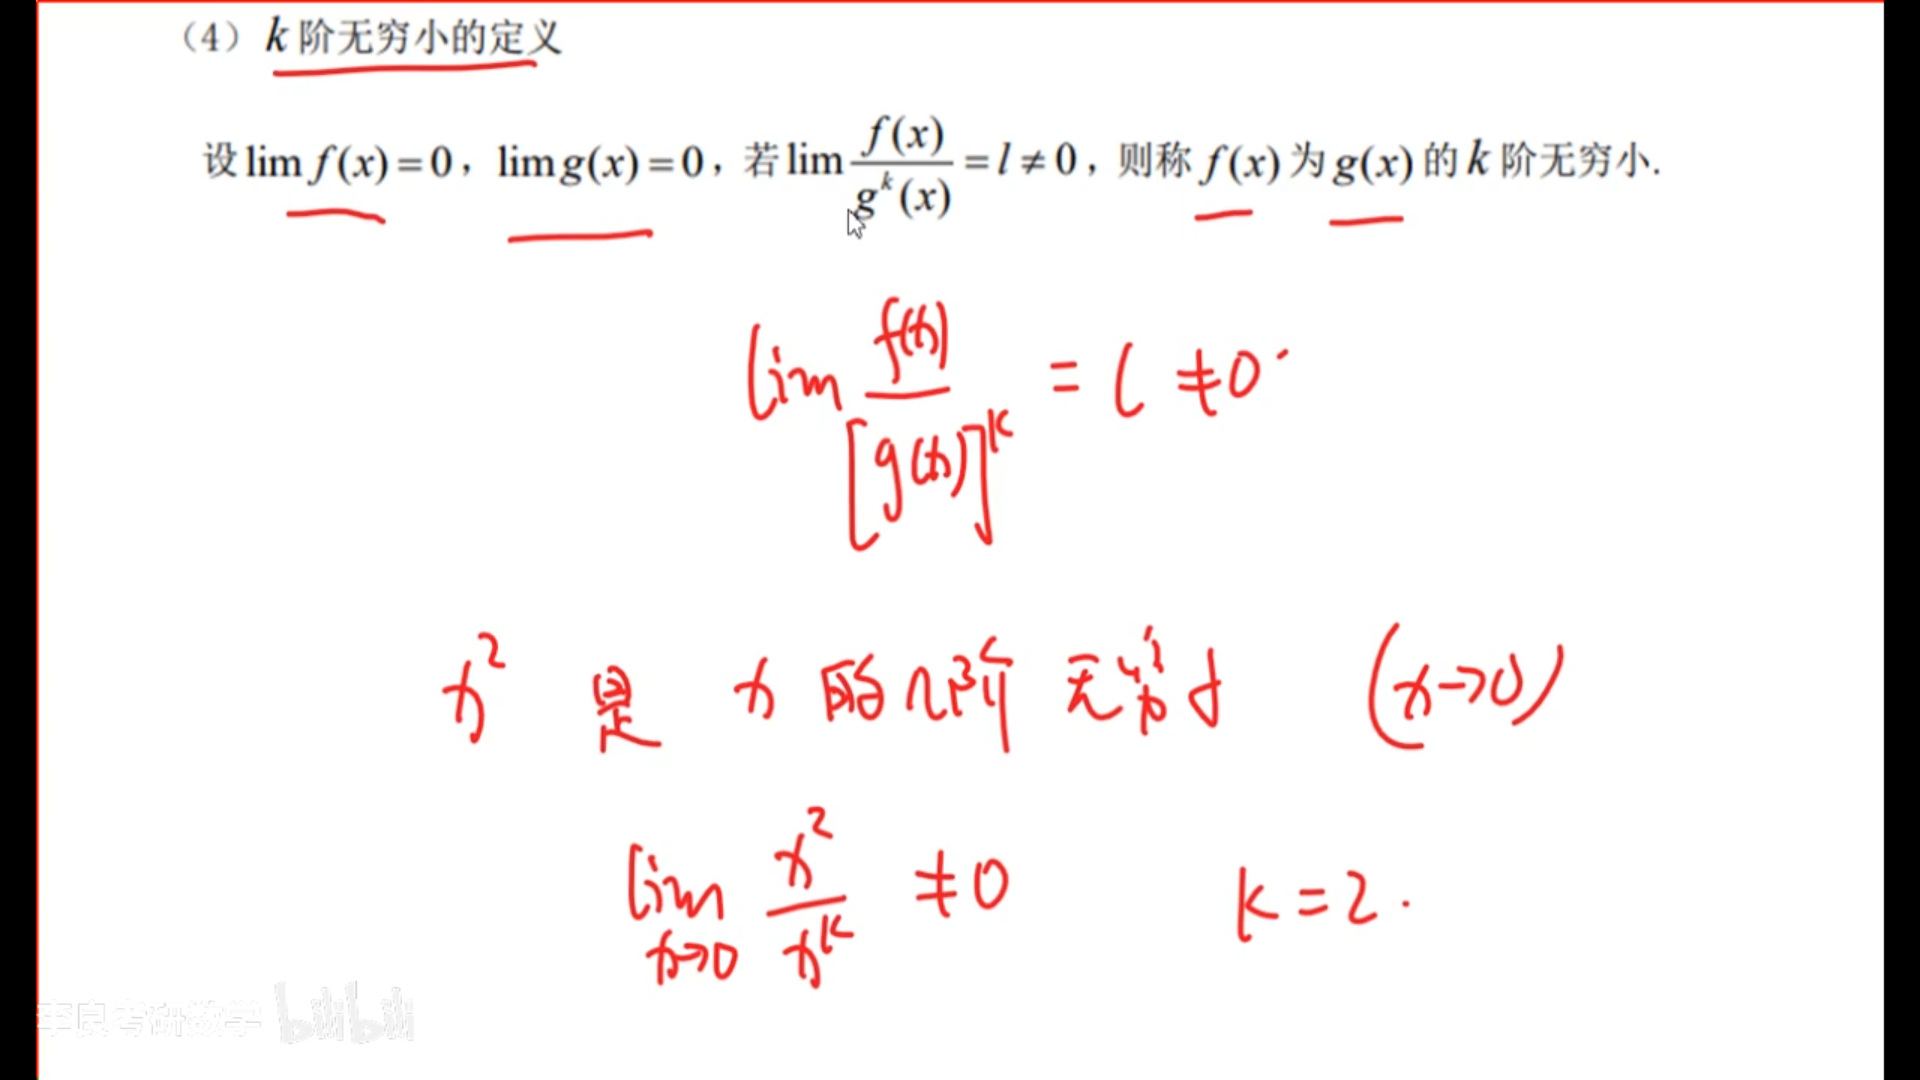 （4）k 阶无穷小的定义
设 lim f(x) = 0，lim g(x) = 0，若 lim f(x)/g^k(x) = l ≠ 0，则称 f(x) 为 g(x) 的 k 阶无穷小.
lim f(x)/[g(x)]^k = l ≠ 0.
x² 是 x 的 2阶 无穷小 (x→0)
lim x→0 x²/x^k ≠ 0 k = 2.
李良考研数学 bilibili